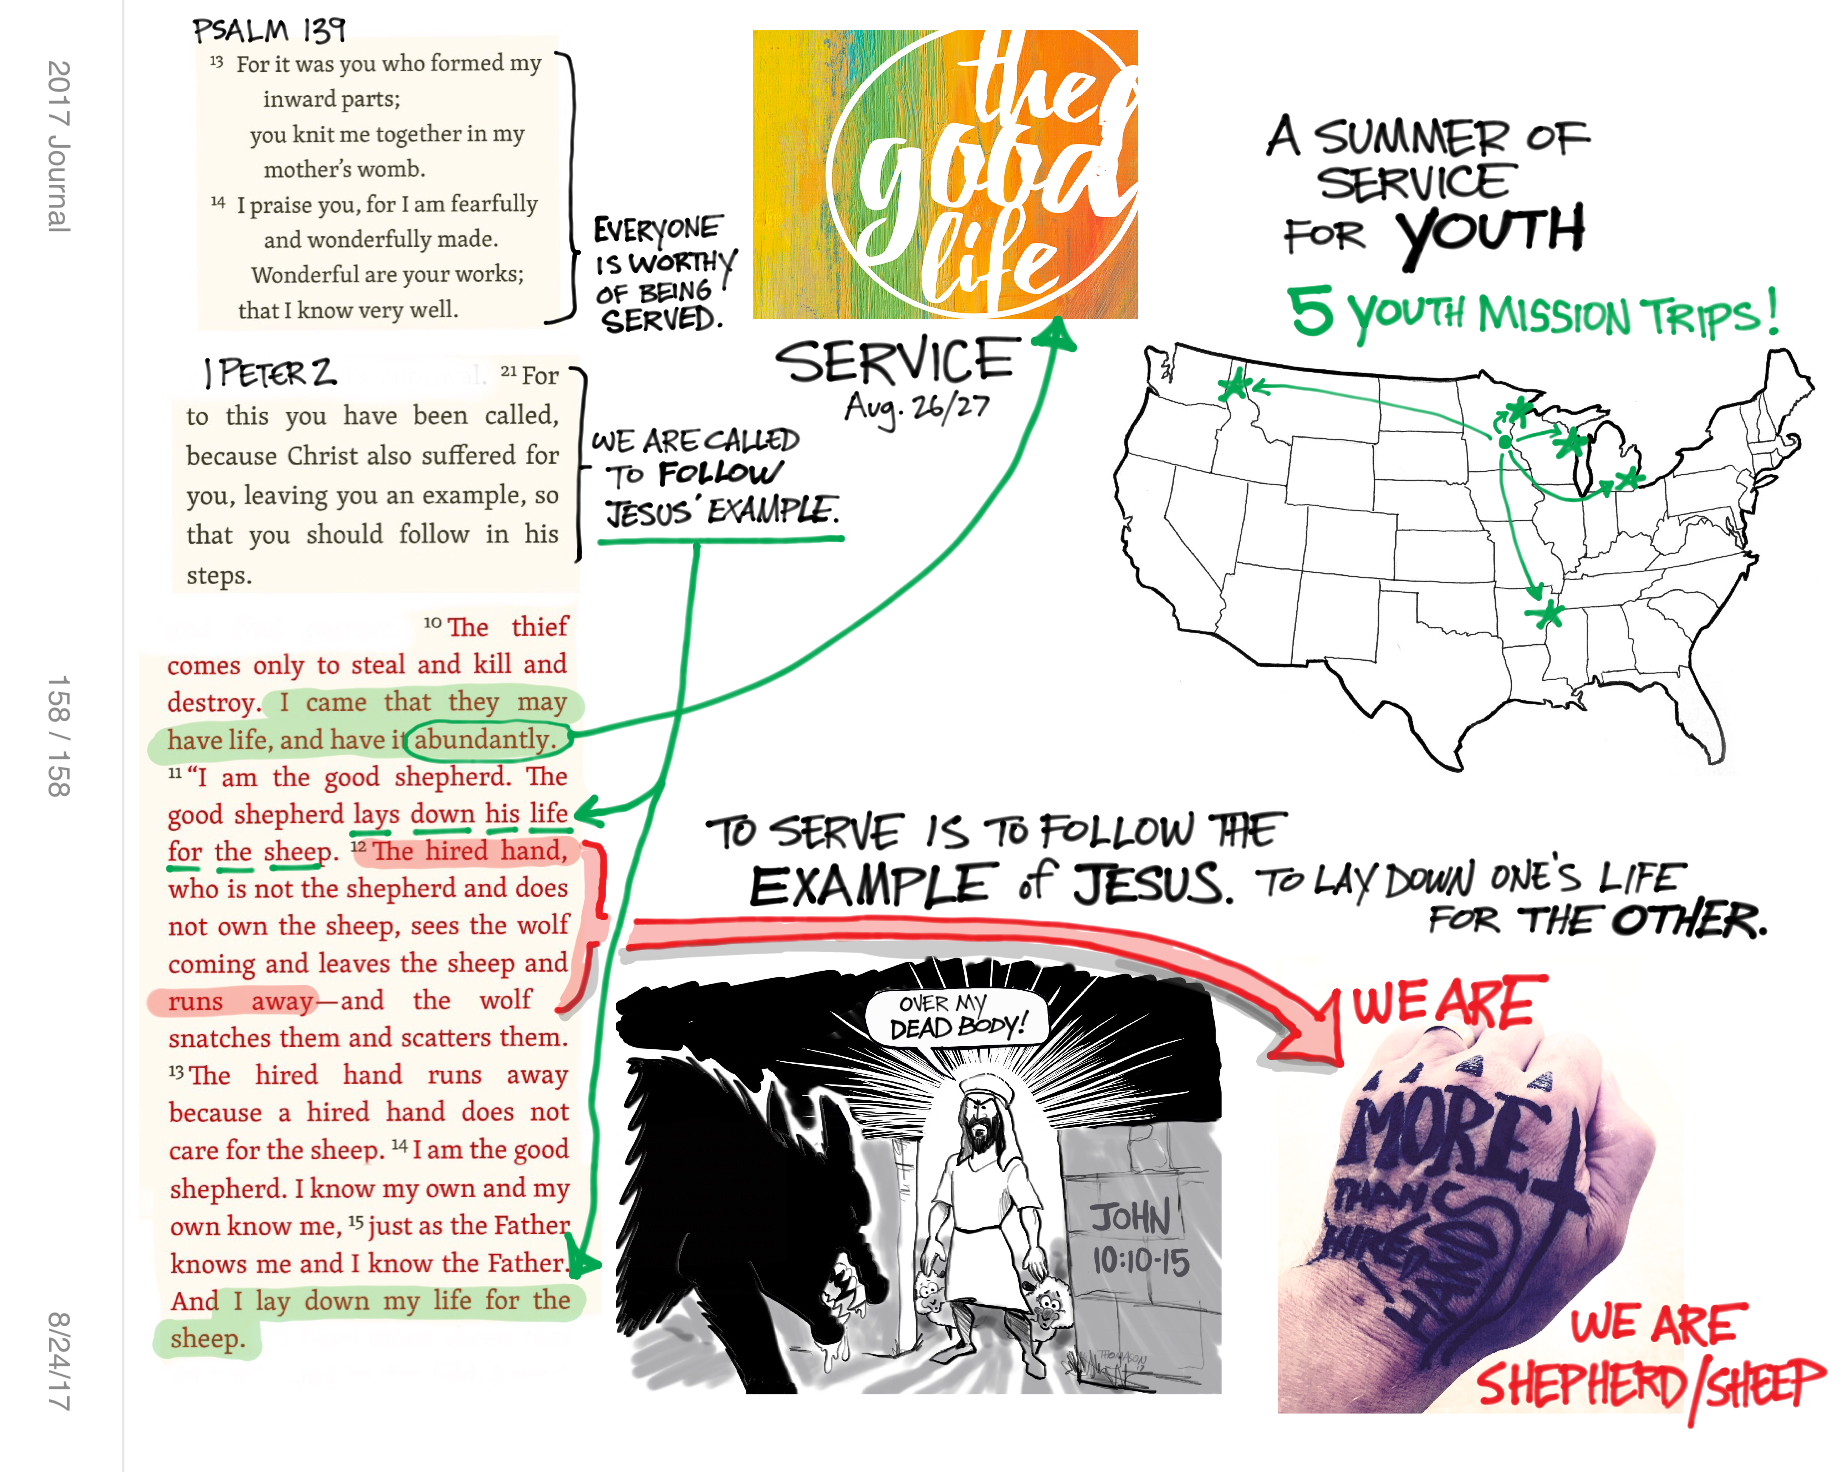 2017 Journal
158 / 158
8/24/17
PSALM 139
13 For it was you who formed my
inward parts;
you knit me together in my
mother's womb.
14 I praise you, for I am fearfully
and wonderfully made.
Wonderful are your works;
that I know very well.
EVERYONE
IS WORTHY
OF BEING
SERVED.
1 PETER 2
21 For
to this you have been called,
because Christ also suffered for
you, leaving you an example, so
that you should follow in his
steps.
WE ARE CALLED
TO FOLLOW
JESUS' EXAMPLE.
10 The thief
comes only to steal and kill and
destroy. I came that they may
have life, and have it abundantly.
11 "I am the good shepherd. The
good shepherd lays down his life
for the sheep. 12 The hired hand,
who is not the shepherd and does
not own the sheep, sees the wolf
coming and leaves the sheep and
runs away—and the wolf
snatches them and scatters them.
13 The hired hand runs away
because a hired hand does not
care for the sheep. 14 I am the good
shepherd. I know my own and my
own know me, 15 just as the Father
knows me and I know the Father.
And I lay down my life for the
sheep.
the
good
life
SERVICE
Aug. 26/27
A SUMMER OF
SERVICE
FOR YOUTH
5 YOUTH MISSION TRIPS!
TO SERVE IS TO FOLLOW THE
EXAMPLE of JESUS. TO LAY DOWN ONE'S LIFE
FOR THE OTHER.
OVER MY
DEAD BODY!
JOHN
10:10-15
THOMASON
WE ARE
MORE
THAN
HIRED
HAND
WE ARE
SHEPHERD/SHEEP